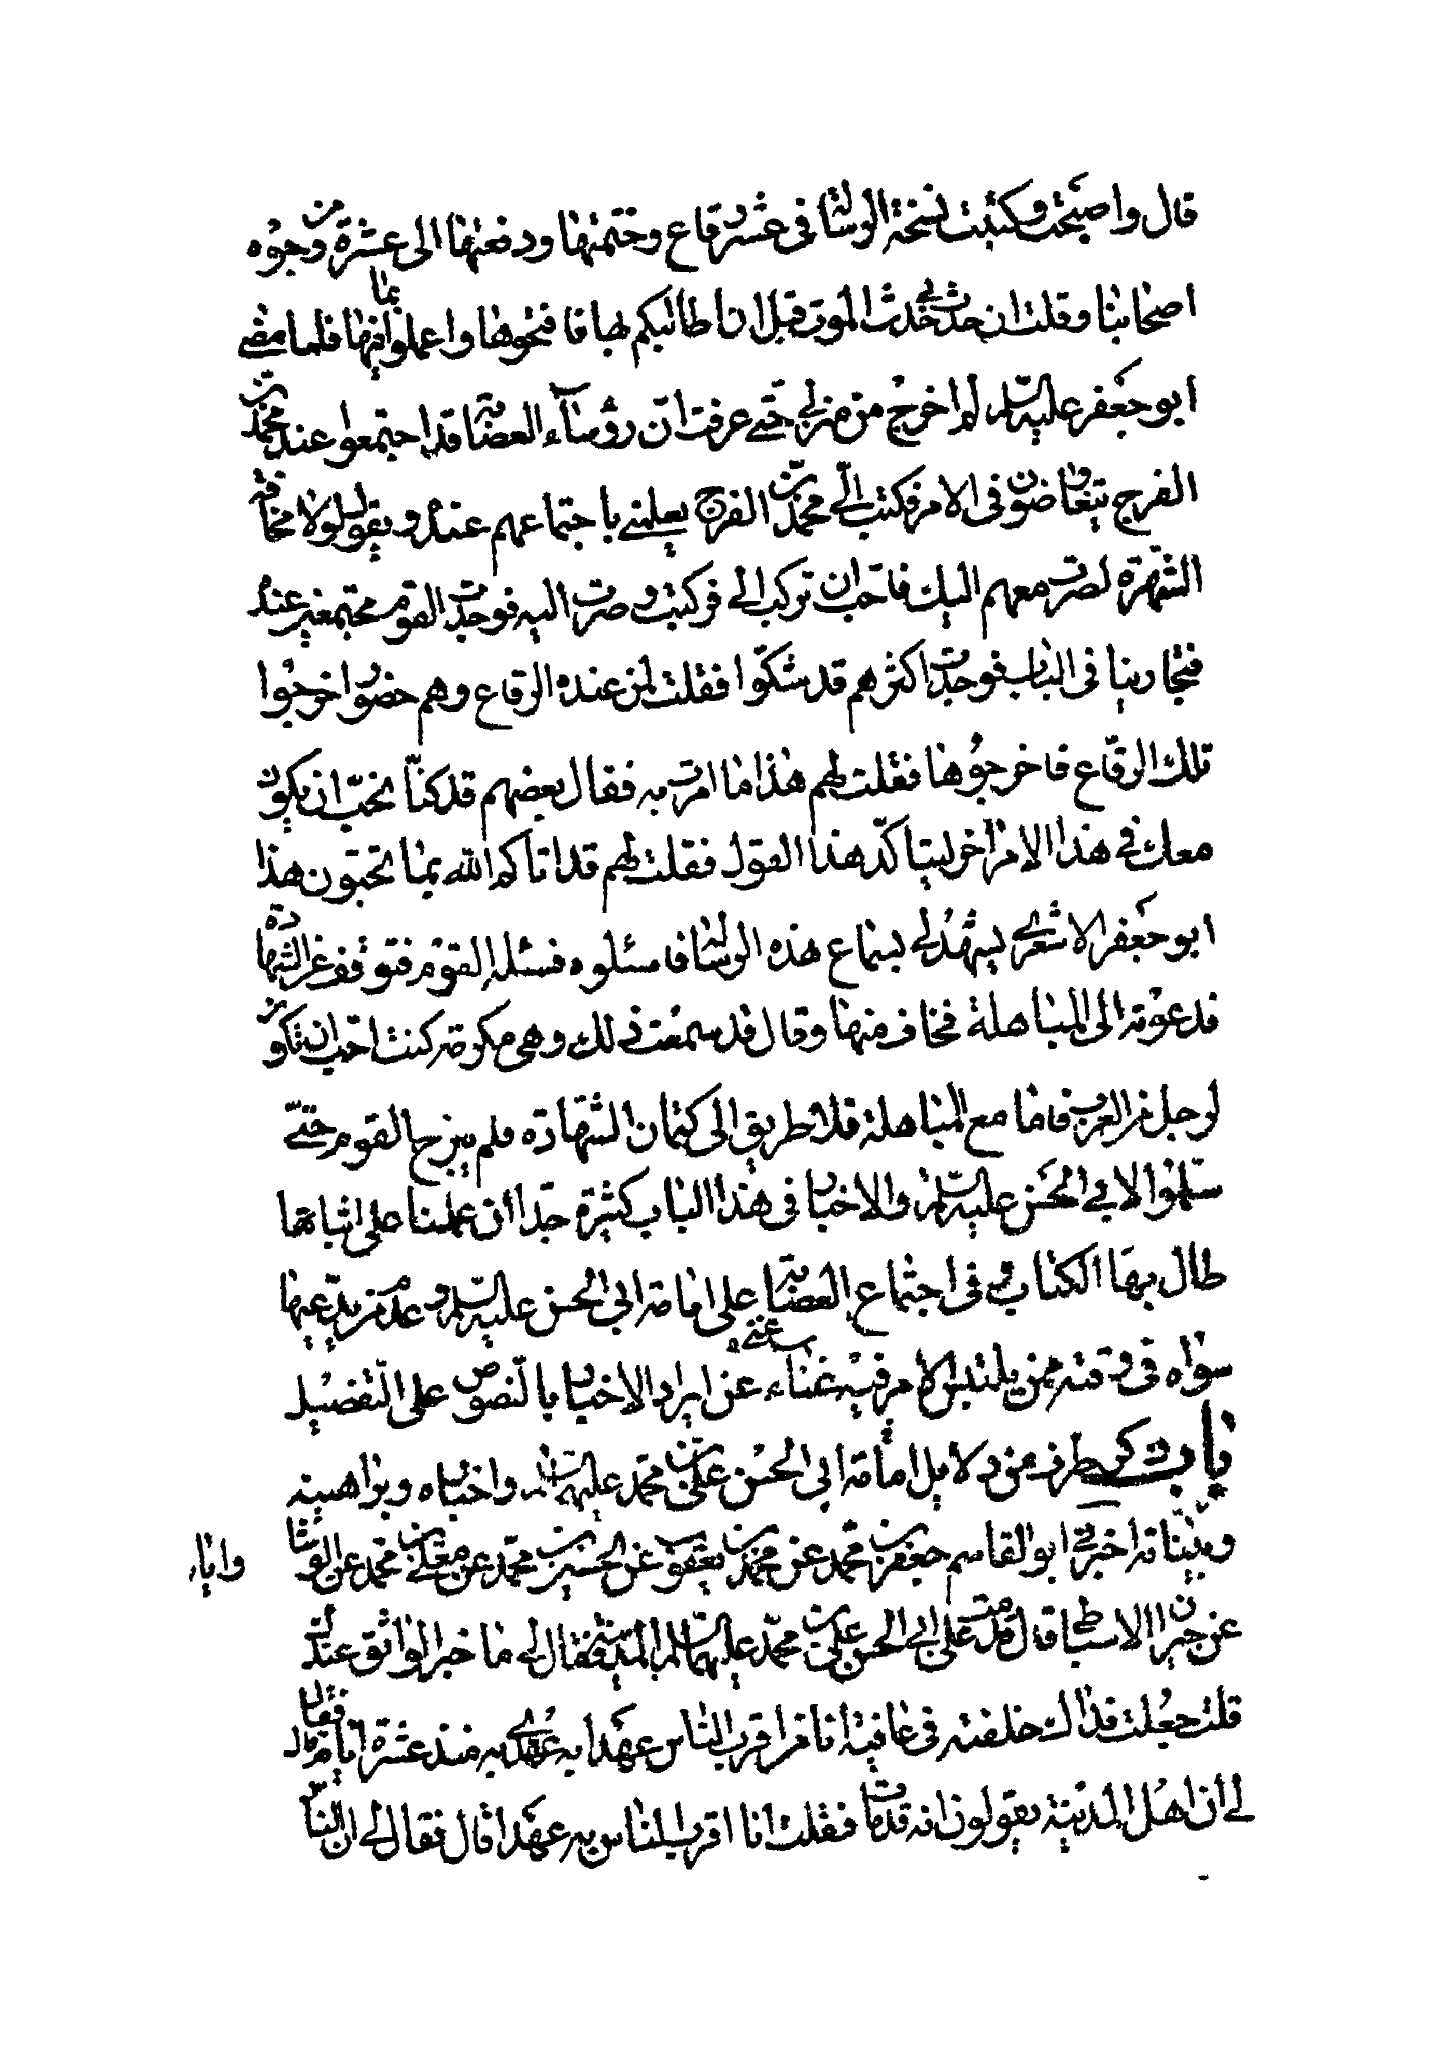 قال واصبحت وكتبت نسخة الرسالة في عشر رقاع وختمتها ودفعتها الى عشرة من وجوه
اصحابنا وقلت ان حدث بي حدث الموت قبل ان اطالبكم بها فافتحوها واعملوا بما فيها فلما مضى
ابو جعفر عليه السلم لم اخرج من منزلي حتى عرفت ان رؤساء العصابة قد اجتمعوا عند محمد بن
الفرج يتفاوضون في الامر فكتب الي محمد بن الفرج يعلمني باجتماعهم عنده ويقول لولا مخافة
الشهرة لصرت معهم اليك فاحب ان تركب الي فركبت وصرت اليه فوجدت القوم مجتمعين عنده
فتجارينا في الباب فوجدت اكثرهم قد شكوا فقلت لمن عنده الرقاع وهم حضور اخرجوا
تلك الرقاع فاخرجوها فقلت لهم هذا ما امرت به فقال بعضهم قد كنا نحب ان يكون
معك في هذا الامر اخر ليتاكد هذا القول فقلت لهم قد اتاكم الله بما تحبون هذا
ابو جعفر الاشعري يشهد لي بسماع هذه الرسالة فاسئلوه فسئله القوم فتوقف عن الشهادة
فدعوته الى المباهلة فخاف منها وقال قد سمعت ذلك وهي مكرمة كنت احب ان تكون
لرجل من العرب فاما مع المباهلة فلا طريق الى كتمان الشهادة فلم يبرح القوم حتى
سلموا لابي الحسن عليه السلم والاخبار في هذا الباب كثيرة جدا ان عملنا على اثباتها
طال بها الكتاب وفي اجتماع العصابة على امامة ابي الحسن عليه السلم وعدم من يدعيها
سواه في وقته ممن يلتبس الامر فيه غناء عن ايراد الاخبار بالنصوص على التفصيل
باب ذكر طرف من دلايل امامة ابي الحسن علي بن محمد عليهما السلم واخباره وبراهينه
وبيناته اخبرني ابو القاسم جعفر بن محمد عن محمد بن يعقوب عن الحسين بن محمد عن معلى بن محمد عن الوشا
عن خيران الاسباطي قال قدمت على ابي الحسن علي بن محمد عليهما السلم المدينة فقال لي ما خبر الواثق عندك
قلت جعلت فداك خلفته في عافية انا من اقرب الناس عهدا به عهدي به منذ عشرة ايام قال فقال
لي ان اهل المدينة يقولون انه قد مات فقلت انا اقرب الناس به عهدا قال فقال لي ان الناس